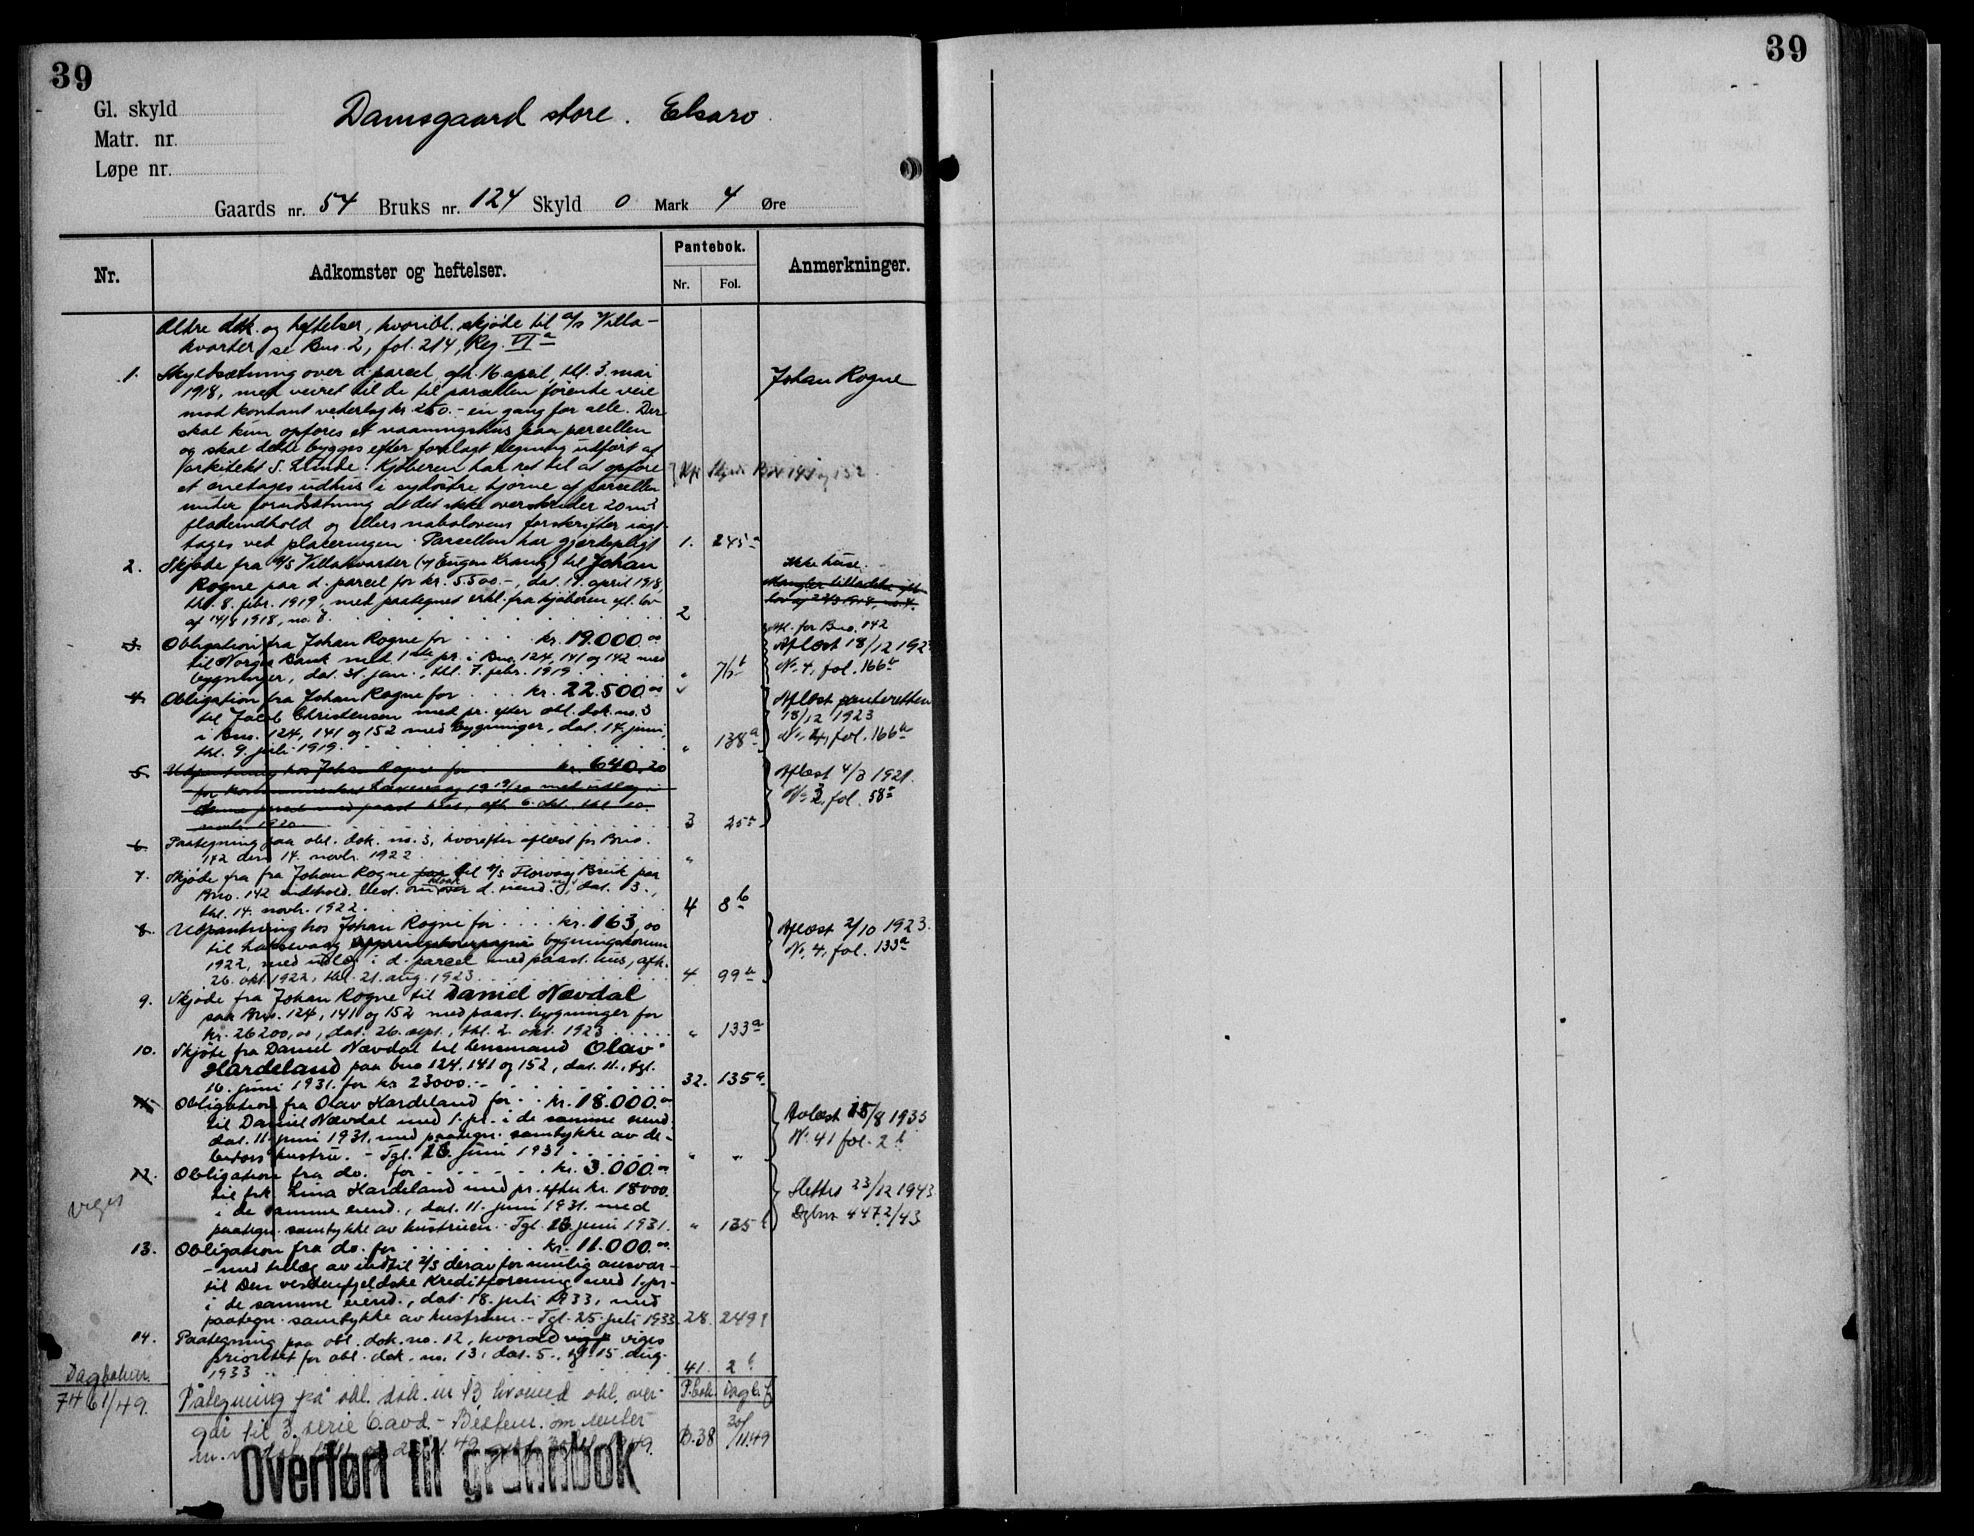 39
39
Gl. skyld
Matr. nr.
Løpe nr.
Damsgaard store. Elsaro
Gaards nr. 54 Bruks nr. 124 Skyld 0 Mark 4 Øre
Nr.
Adkomster og heftelser.
Pantebok.
Nr. Fol.
Anmerkninger.
Ældre dok. og heftelser, hvoribl. skjøde til A/S Villa-
kvarter, se Bno. 2, fol. 214, Reg. VI a
1. Skyldsætning over d. parcel, afh. 16. april, thl. 3. mai
1918, med veiret til de til parcellen førende veie
mod kontant vederlag kr 250.- en gang for alle. Der
skal kun opføres et vaaningshus paa parcellen
og skal dette bygges efter forelagt tegning utført af
arkitekt S. Lunde. Kjøberen har ret til at opføre
et enetages udhus i sydøstre hjørne af parcellen
under forudsætning at det ikke overskrider 20 m²
fladeindhold og ellers nabolovens forskrifter iagt-
tages ved placeringen. Parcellen har gjerdepligt 1. 245
Johan Rogne
141 og 152
2. Skjøde fra A/S Villakvarter (v/ Eugen Krantz) til Johan
Rogne paa d. parcel for kr. 5500.-, dat. 17. april 1918,
thl. 8. febr. 1919, med paategnet erkl. fra kjøberen efl. lov
af 14/8 1918, no. 8 2
Ikke huse.
Mangler tilladelse ifl.
3. Obligation fra Johan Rogne for kr. 19.000.00
til Norges Bank med 1ste pr. i Bno. 124, 141 og 142 med
bygninger, dat. 31. jan., thl. 7. febr. 1919 " 7 b
Afl. for Bno. 142
Aflæst 18/12 1923
No. 4, fol. 166 a
4. Obligation fra Johan Rogne for kr. 22.500.00
til Jacob Christensen med pr. efter obl. dok. no. 3
i Bno. 124, 141 og 152 med bygninger, dat. 14. juni,
thl. 9. juli 1919. " 138 a
Aflæst panteretten
18/12 1923
No. 4, fol. 166 a
5. Udpantning hos Johan Rogne for kr. 640,20
for kommuneskat Laksevaag 1919/20 med utlæg i
denne parcel med paast. hus, afh. 6. okt. thl. 10.
novbr. 1920 3 25 a
Aflæst 4/3 1921.
No. 3, fol. 58
6. Paategning paa obl. dok. no. 3, hvorefter aflæst for Bno.
142 den 14. novbr. 1922 "
7. Skjøde fra fra Johan Rogne paa til A/S Florvaag Bruk paa
Bno. 142 indehold. best. om d. eiend., dat. 13.,
thl. 14. novbr. 1922 4 8 b
8. Udpantning hos Johan Rogne for kr. 163,00
til Laksevaag bygningskomm.
1922, med udlæg i d. parcel med paast. hus, afh.
26. okt. 1922, thl. 21. aug. 1923 4 99 b
Aflæst 2/10 1923.
No. 4, fol. 133 a
9. Skjøde fra Johan Rogne til Daniel Nævdal
paa Bno. 124, 141 og 152 med paast. bygninger for
kr. 26200,00, dat. 26. sept., thl. 2. okt. 1923 " 133 a
10. Skjøte fra Daniel Nævdal til lensmand Olav
Hardeland paa bno 124. 141 og 152, dat. 11., tgl.
16. juni 1931. for kr 23000.- 32. 135 a.
11. Obligation fra Olav Hardeland for kr. 18.000.00
til Daniel Nævdal med 1. pr. i de samme eiend.
dat. 11. juni 1931, med paategn. samtykke av de-
bitors hustru. - Tgl. 16. juni 1931 " "
Avlæst 15/8 1933
No. 41 fol. 2 b
12. Obligation fra do. for kr. 3.000.00
til frk. Lina Hardeland med pr. efter kr. 18000.
i de samme eiend., dat. 11. juni 1931. med
paategn. samtykke av hustruen. - Tgl. 16. juni 1931. " 135 b
Slettes 23/12 1943
Dgbnr. 4472/43
viges
13. Obligation fra do. for kr. 11.000.00.
- med tillæg av indtil 2/3 derav for mulig ansvar -
til Den vestenfjeldske Kreditforening med 1. pr.
i de samme eiend., dat. 18. juli 1933, med
paategn. samtykke av hustruen. - Tgl. 25. juli 1933 28. 249
14. Paategning paa obl. dok. no. 12, hvorved viges
prioritet for obl. dok. no. 13. dat. 5., tgl. 15. aug.
1933 41. 2 b
Dagboknr.
7461/49.
Påtegning på obl. dok. nr 13, hvorved obl. over-
går til 3. serie 6. avd. - Bestem. om renter
P.bok. Dagb.
B.38 30/11.49
Overført til grunnbok